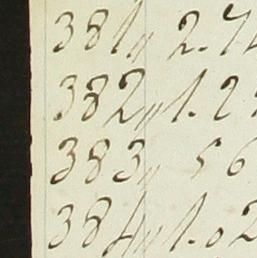 381 " 2.7
382 " 1.2
383 " 56
384 " 1.02